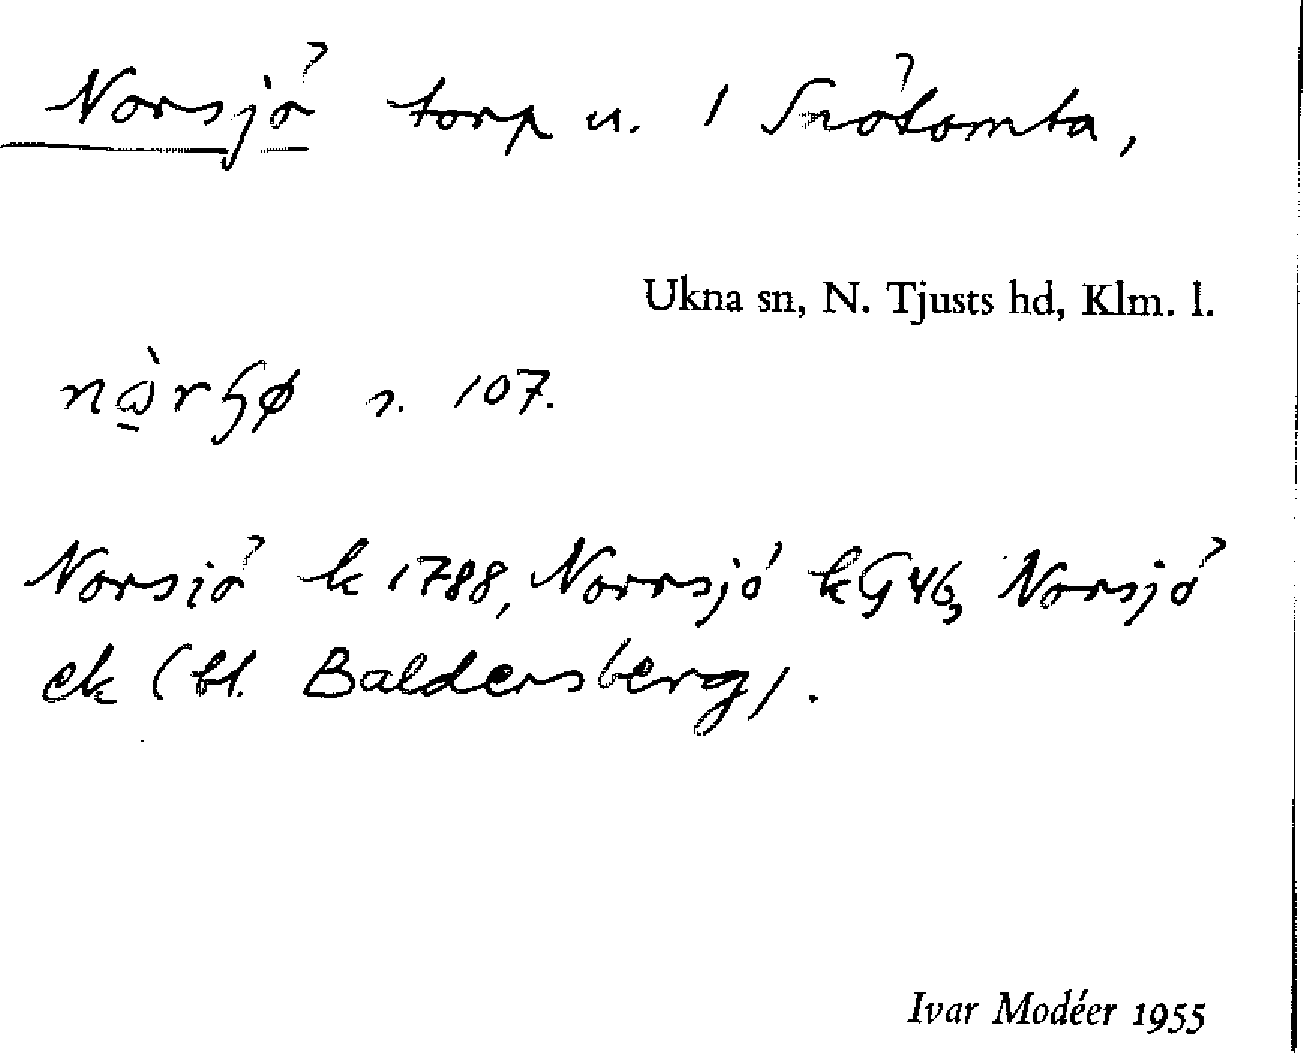 Norsjö torp u. 1 Snötomta,
Ukna sn, N. Tjusts hd, Klm. l.
s. 107.
Norsjö k 1788, Norrsjö k G 46, Norsjö
ek (bl. Baldersberg).
Ivar Modéer 1955